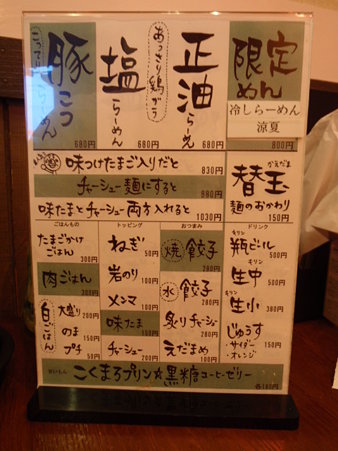 限定めん
冷しらーめん
涼夏
800円
正油らーめん
680円
あっさり鶏ガラ
塩らーめん
680円
豚こつらーめん
680円
味つけたまご入りだと 830円
チャーシュー麺にすると 980円
味たまとチャーシュー両方入れると 1030円
かえだま
替玉
麺のおかわり
150円
ごはんもの
たまごかけごはん
300円
肉ごはん
300円
白ごはん
大盛り 200円
のま 150円
プチ 50円
トッピング
ねぎ 50円
岩のり 100円
メンマ 100円
味たま
チャーシュー
おつまみ
焼餃子
水餃子
炙りチャーシュー
えだまめ
ドリンク
キリン
瓶ビール 500円
キリン
生中 500円
キリン
生小 380円
じゅうす 150円
・サイダー
・オレンジ
こくまろプリン☆黒糖コーヒーゼリー